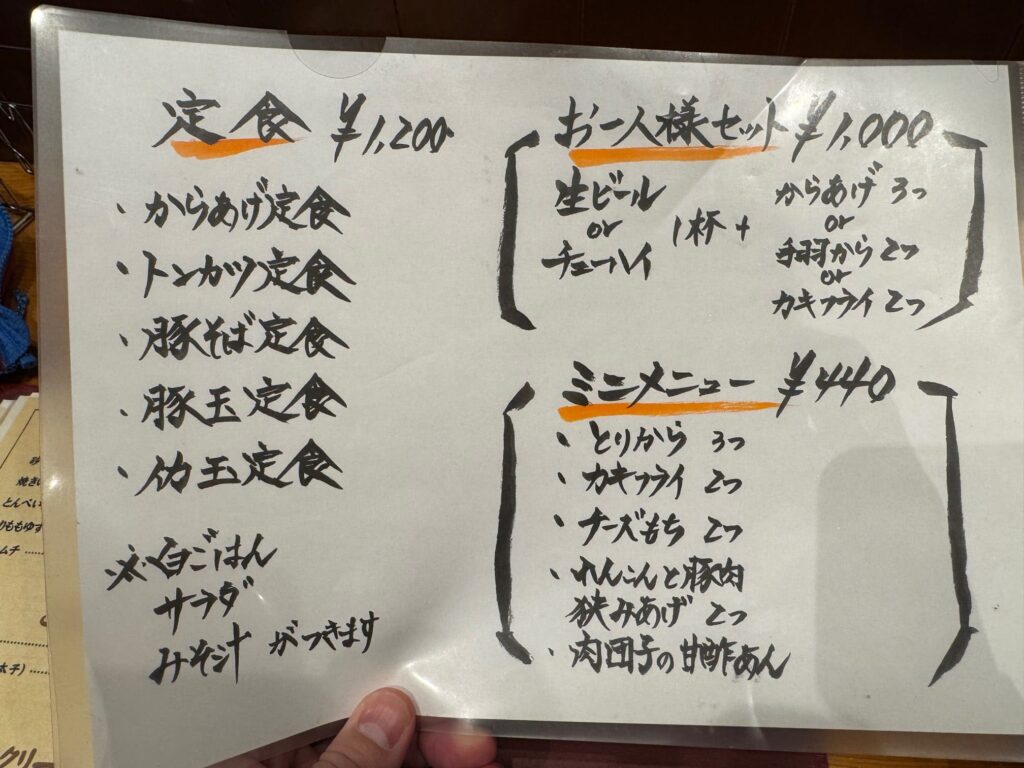 定食 ¥1,200
・からあげ定食
・トンカツ定食
・豚そば定食
・豚玉定食
・イカ玉定食
※白ごはん
サラダ
みそ汁 がつきます
お一人様セット ¥1,000
生ビール
or
チューハイ
1杯+
からあげ 3つ
or
手羽から 2つ
or
カキフライ 2つ
ミニメニュー ¥440
・とりから 3つ
・カキフライ 2つ
・チーズもち 2つ
・れんこんと豚肉
狭みあげ 2つ
・肉団子の甘酢あん
焼き
とんぺい
ももゆず
ムチ
太子)
クリー